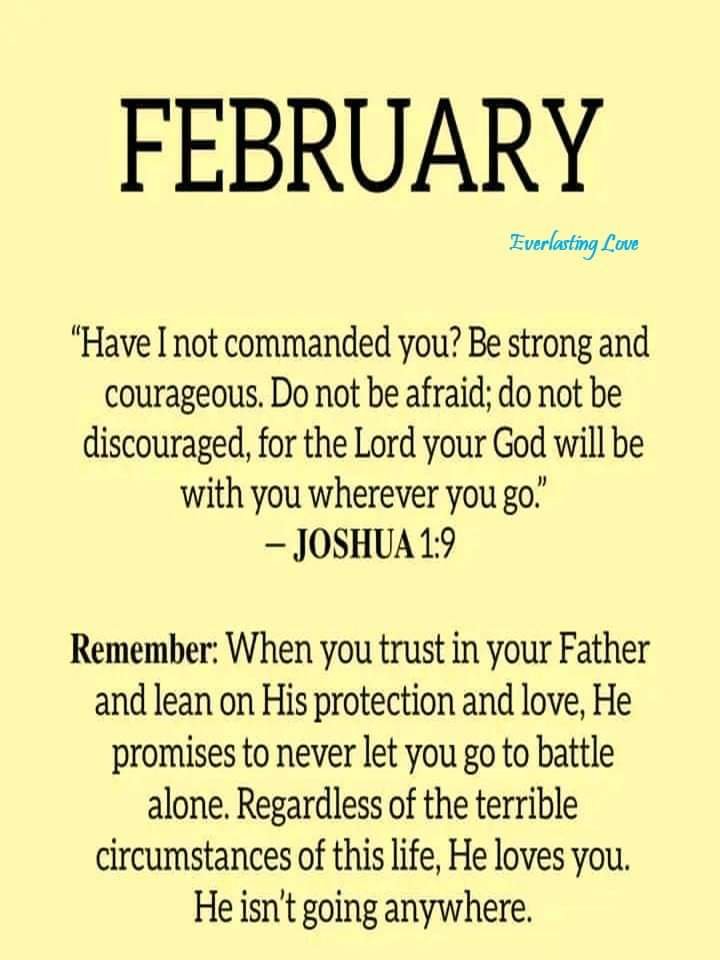 FEBRUARY
Everlasting Love
“Have I not commanded you? Be strong and
courageous. Do not be afraid; do not be
discouraged, for the Lord your God will be
with you wherever you go.”
– JOSHUA 1:9
Remember: When you trust in your Father
and lean on His protection and love, He
promises to never let you go to battle
alone. Regardless of the terrible
circumstances of this life, He loves you.
He isn’t going anywhere.